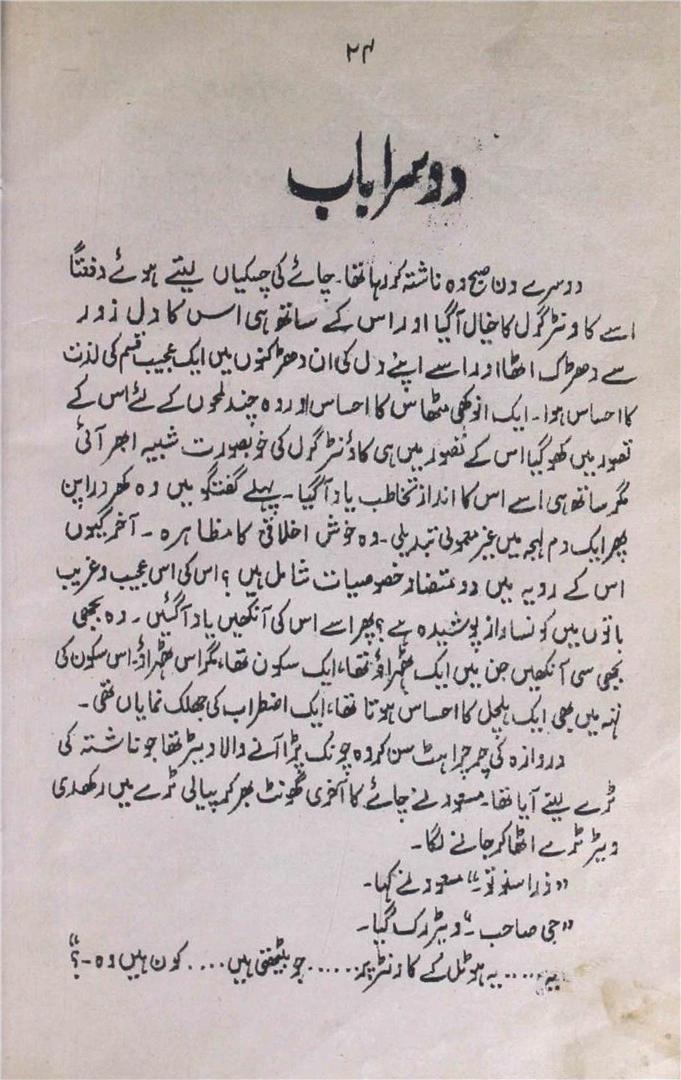 ۲۴
دوسرا باب
دوسرے دن صبح وہ ناشتہ کر رہا تھا۔ چائے کی چسکیاں لیتے ہوئے دفعتاً
اسے کاونٹر گرل کا خیال آگیا اور اس کے ساتھ ہی اس کا دل زور
سے دھڑک اٹھا اور اسے اپنے دل کی ان دھڑکنوں میں ایک عجیب قسم کی لذت
کا احساس ہوا۔ ایک انوکھی مٹھاس کا احساس اور وہ چند لمحوں کے لئے اس کے
تصور میں کھو گیا اس کے تصور میں ہی کاؤنٹر گرل کی خوبصورت شبیہ ابھر آئی
مگر ساتھ ہی اسے اس کا انداز تخاطب یاد آگیا۔ پہلے گفتگو میں وہ کھردراپن
پھر ایک دم لہجہ میں غیر معمولی تبدیلی۔ وہ خوش اخلاقی کا مظاہرہ ۔ آخر کیوں
اس کے رویہ میں دو متضاد خصوصیات شامل ہیں ؟ اس کی اس عجیب و غریب
باتوں میں کونسا راز پوشیدہ ہے ؟ پھر اسے اس کی آنکھیں یاد آگئیں ۔ وہ بجھی
بجھی سی آنکھیں جن میں ایک ٹھہراؤ تھا، ایک سکون تھا، مگر اس ٹھہراؤ۔ اس سکون کی
تہہ میں بھی ایک ہلچل کا احساس ہوتا تھا، ایک اضطراب کی جھلک نمایاں تھی ۔
دروازہ کی چرچراہٹ سن کر وہ چونک پڑا آنے والا ویٹر تھا جو ناشتہ کی
ٹرے لیتے آیا تھا۔ مسعود نے چائے کا آخری گھونٹ بھر کر پیالی ٹرے میں رکھدی
ویٹر ٹرے اٹھا کر جانے لگا۔
"ذرا سنو تو۔" مسعود نے کہا۔
"جی صاحب ۔" ویٹر رک گیا۔
"یہ..... یہ ہوٹل کے کاونٹر پر...... جو بیٹھتی ہیں.... کون ہیں وہ ۔؟"